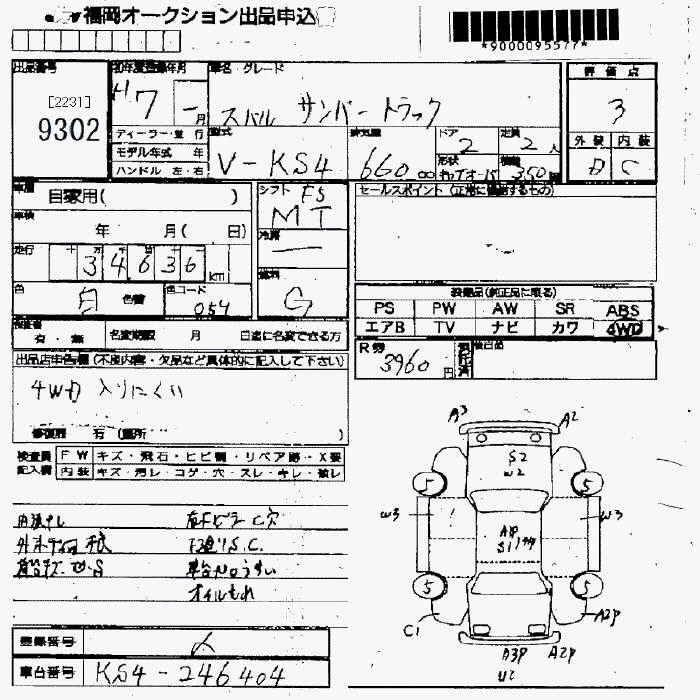 福岡オークション出品申込
*9000095577*
出品番号
[2231]
9302
初年度登録年月
H7 - 月
ディーラー・並行
モデル年式 年
ハンドル 左・右
車名・グレード
スバル サンバートラック
型式
V-KS4
排気量
660 cc
ドア
2
定員
2人
形状
積載
350
評価点
3
外装 内装
D C
車歴
自家用( )
車検
年 月( 日)
走行
34636 km
色
白 色替
色コード
054
シフト F5
MT
冷房
燃料
G
セールスポイント (正常に稼働するもの)
装備品(純正品に限る)
PS PW AW SR ABS
エアB TV ナビ カワ 4WD
有・無
名変期限 月 日迄に名変できる方
R券
3960円
出品店申告欄(不良内容・欠品など具体的に記入して下さい)
4WD 入りにくい
修復歴 有 (箇所 )
検査員記入欄
FW キズ・飛石・ヒビ割・リペア跡・X要
内装 キズ・汚レ・コゲ・穴・スレ・キレ・破レ
下廻りS.C.
オイルもれ
登録番号
車台番号 KS4-246404
A3 A2
S2
W2
5 5
W3 W3
5 5
C1 A2P
A3P A2P
U2